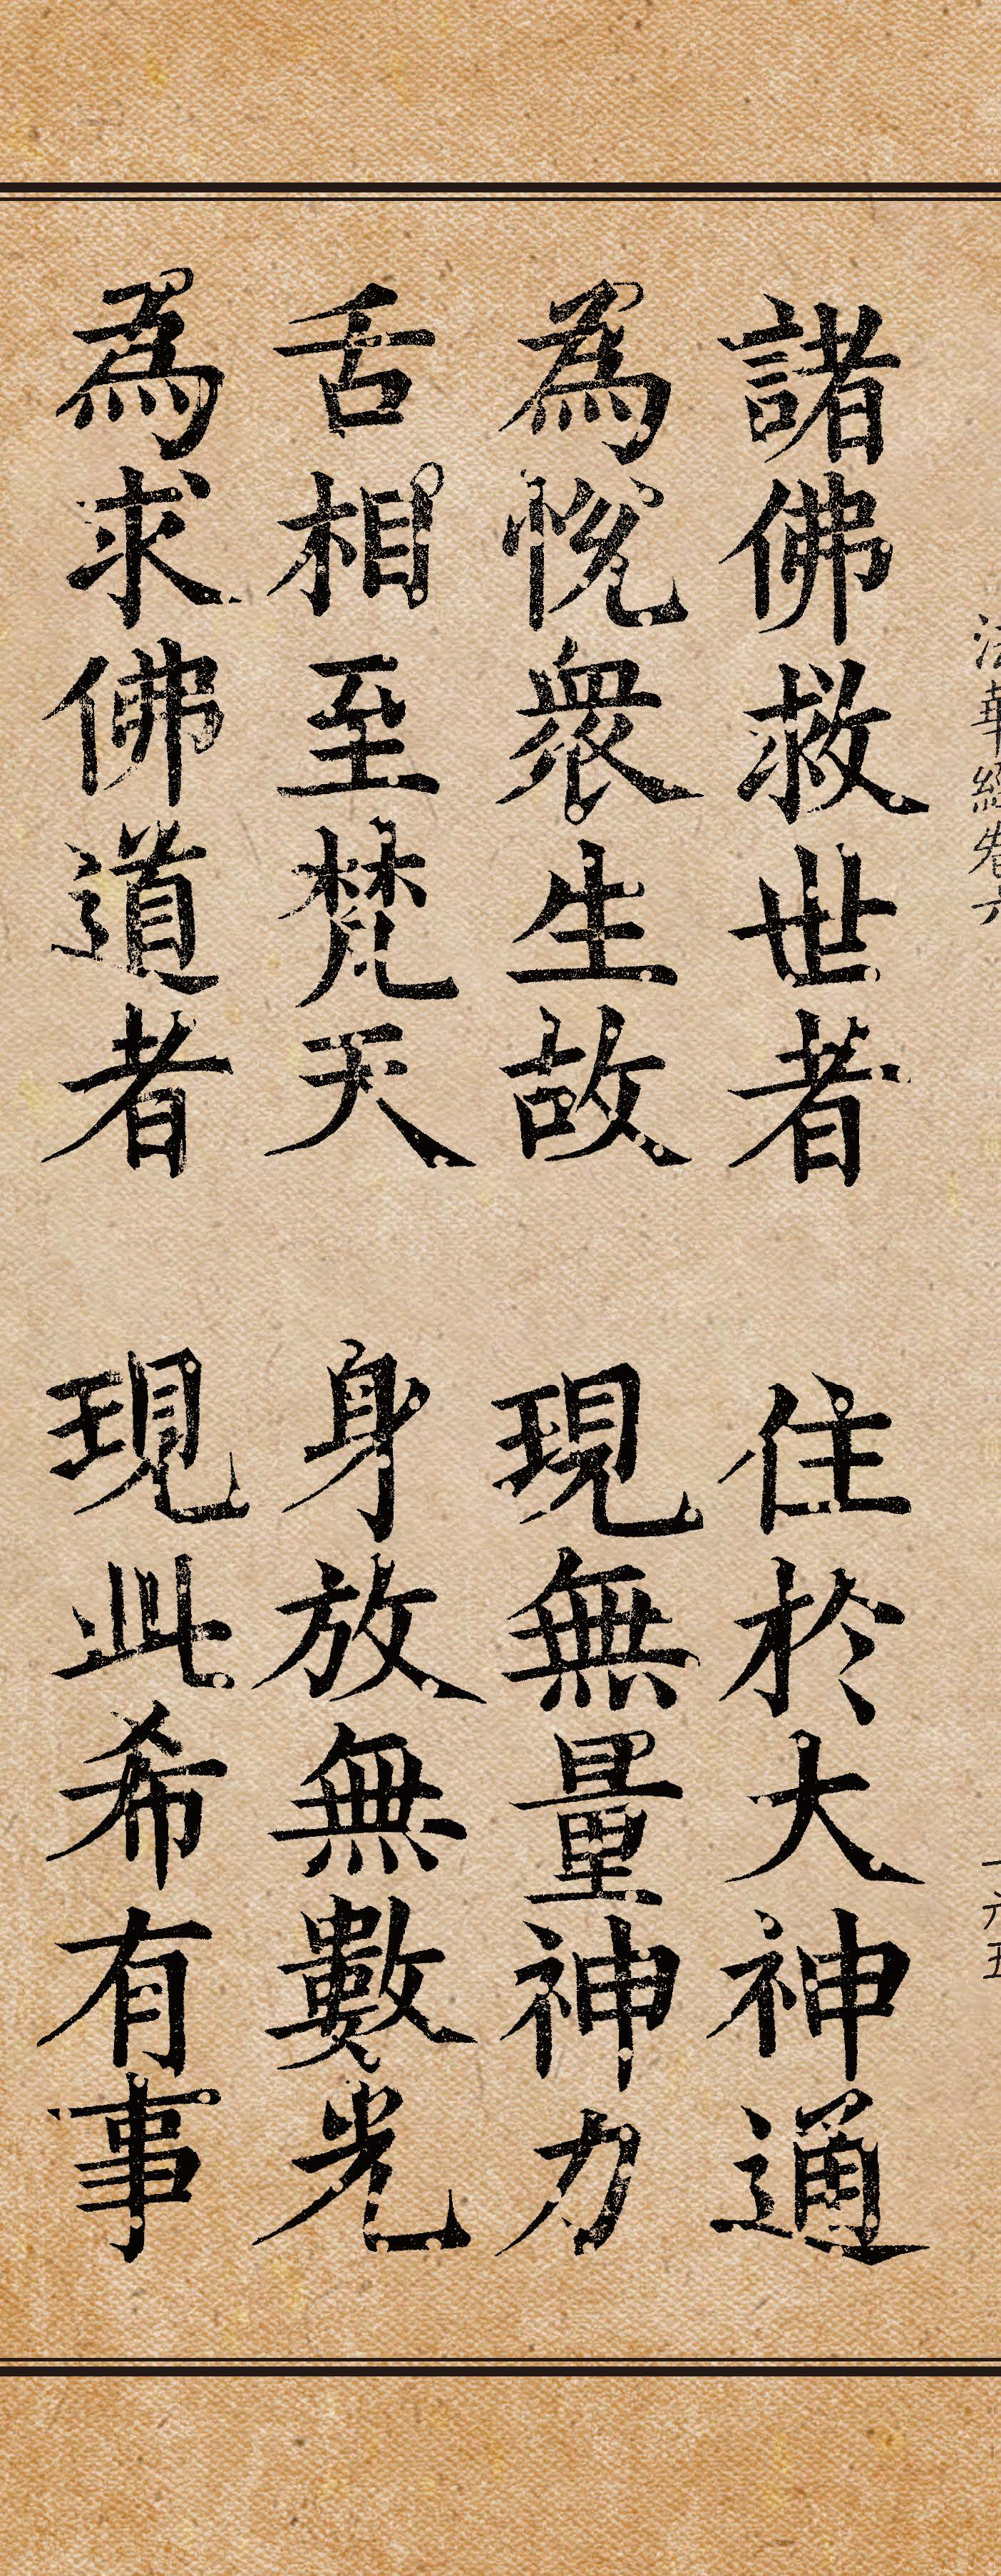 法華經卷六 一六五
諸佛救世者 住於大神通
為悅衆生故 現無量神力
舌相至梵天 身放無數光
為求佛道者 現此希有事